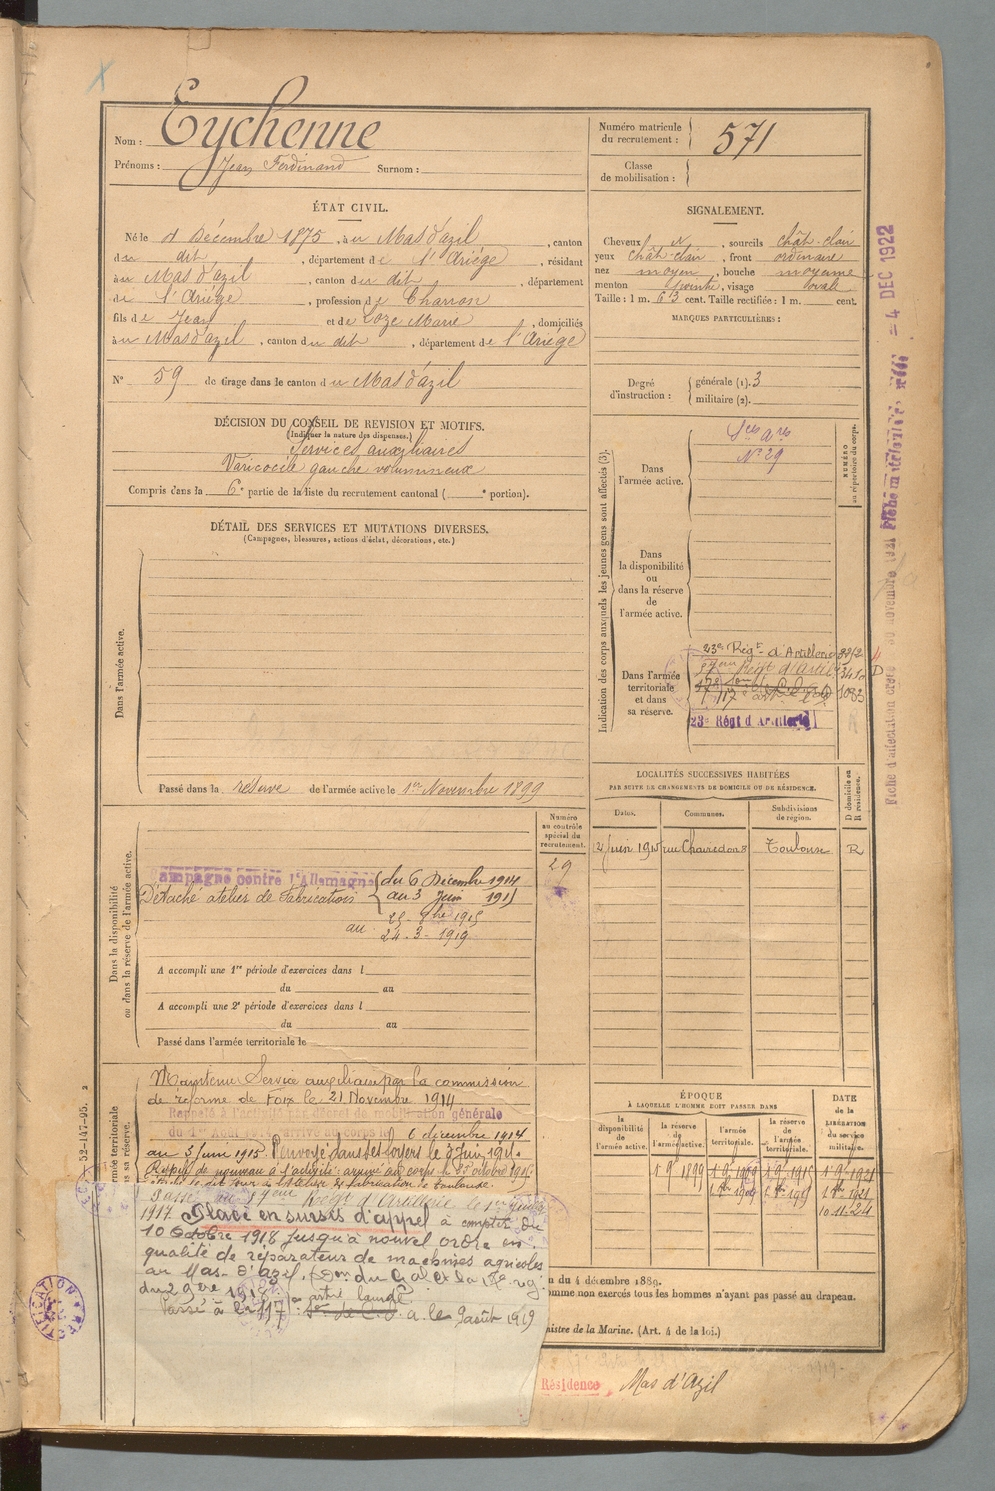 Nom : Eychenne
Prénoms : Jean Ferdinand Surnom :
Numéro matricule du recrutement : 571
Classe de mobilisation :
ÉTAT CIVIL.
Né le 4 Décembre 1875, à u Mas d'azil, canton
du dit, département de l'Ariége, résidant
à u Mas d'azil, canton du dit, département
de l'Ariége, profession de Charron
fils de Jean et de Loze Marie, domiciliés
à u Mas d'azil, canton du dit, département de l'Ariége
N° 59 de tirage dans le canton du Mas d'azil
SIGNALEMENT.
Cheveux N, sourcils chât-clair
yeux chât-clair, front ordinaire
nez moyen, bouche moyenne
menton pointu, visage ovale
Taille : 1 m. 63 cent. Taille rectifiée : 1 m. cent.
MARQUES PARTICULIÈRES :
Degré d'instruction : générale (1). 3
militaire (2).
DÉCISION DU CONSEIL DE REVISION ET MOTIFS.
(Indiquer la nature des dispenses.)
Services auxiliaires
Varicocèle gauche volumineux
Compris dans la 6e partie de la liste du recrutement cantonal ( e portion).
DÉTAIL DES SERVICES ET MUTATIONS DIVERSES.
(Campagnes, blessures, actions d'éclat, décorations, etc.)
Dans l'armée active.
Passé dans la réserve de l'armée active le 1er Novembre 1899
Indication des corps auxquels les jeunes gens sont affectés (3).
NUMÉRO au répertoire du corps.
Dans l'armée active.
Ses ares
N° 29
Dans la disponibilité ou dans la réserve de l'armée active.
Dans l'armée territoriale et dans sa réserve.
23e Régt d'Artillerie
57eme Régt d'Artil
23e Régt d'Artillerie
Fiche d'affectation créée
= 4 DEC 1922
LOCALITÉS SUCCESSIVES HABITÉES
PAR SUITE DE CHANGEMENTS DE DOMICILE OU DE RÉSIDENCE.
Dates. Communes. Subdivisions de région. D domicile ou R résidence.
2 Juin 1915 Toulouse R
Dans la disponibilité ou dans la réserve de l'armée active.
Numéro au contrôle spécial du recrutement.
29
Campagne contre l'Allemagne du 6 Décembre 1914
Détaché atelier de Fabrication au 3 Juin 1915
25 8bre 1915
au 24.3.1919
A accompli une 1re période d'exercices dans l
du au
A accompli une 2e période d'exercices dans l
du au
Passé dans l'armée territoriale le
52-147-95.
Maintenu Service auxiliaire par la commission
de réforme de Foix le 21 Novembre 1914
Rappelé à l'activité par décret de mobilisation générale
du 1er Août 1914 arrivé au corps le 6 décembre 1914
au 3 Juin 1915. Renvoyé dans ses foyers le 3 Juin 1915.
Rappelé de nouveau à l'activité arrivé au corps le 25 octobre 1915
Passé au 57eme Régt d'Artillerie le 1er Juillet
1917. Placé en sursis d'appel à compter du
10 Octobre 1918 jusqu'à nouvel ordre en
qualité de réparateur de machines agricoles
au Mas-d'Azil.
Passé à la le 9 août 1919
ÉPOQUE
À LAQUELLE L'HOMME DOIT PASSER DANS
la disponibilité de l'armée active. la réserve de l'armée active. l'armée territoriale. la réserve de l'armée territoriale.
DATE de la LIBÉRATION du service militaire.
1 9 1899 1 9 1909 1 9 1915 1 9 1921
10.11.24
du 4 décembre 1889.
omme non exercés tous les hommes n'ayant pas passé au drapeau.
inistre de la Marine. (Art. 4 de la loi.)
Résidence Mas d'Azil